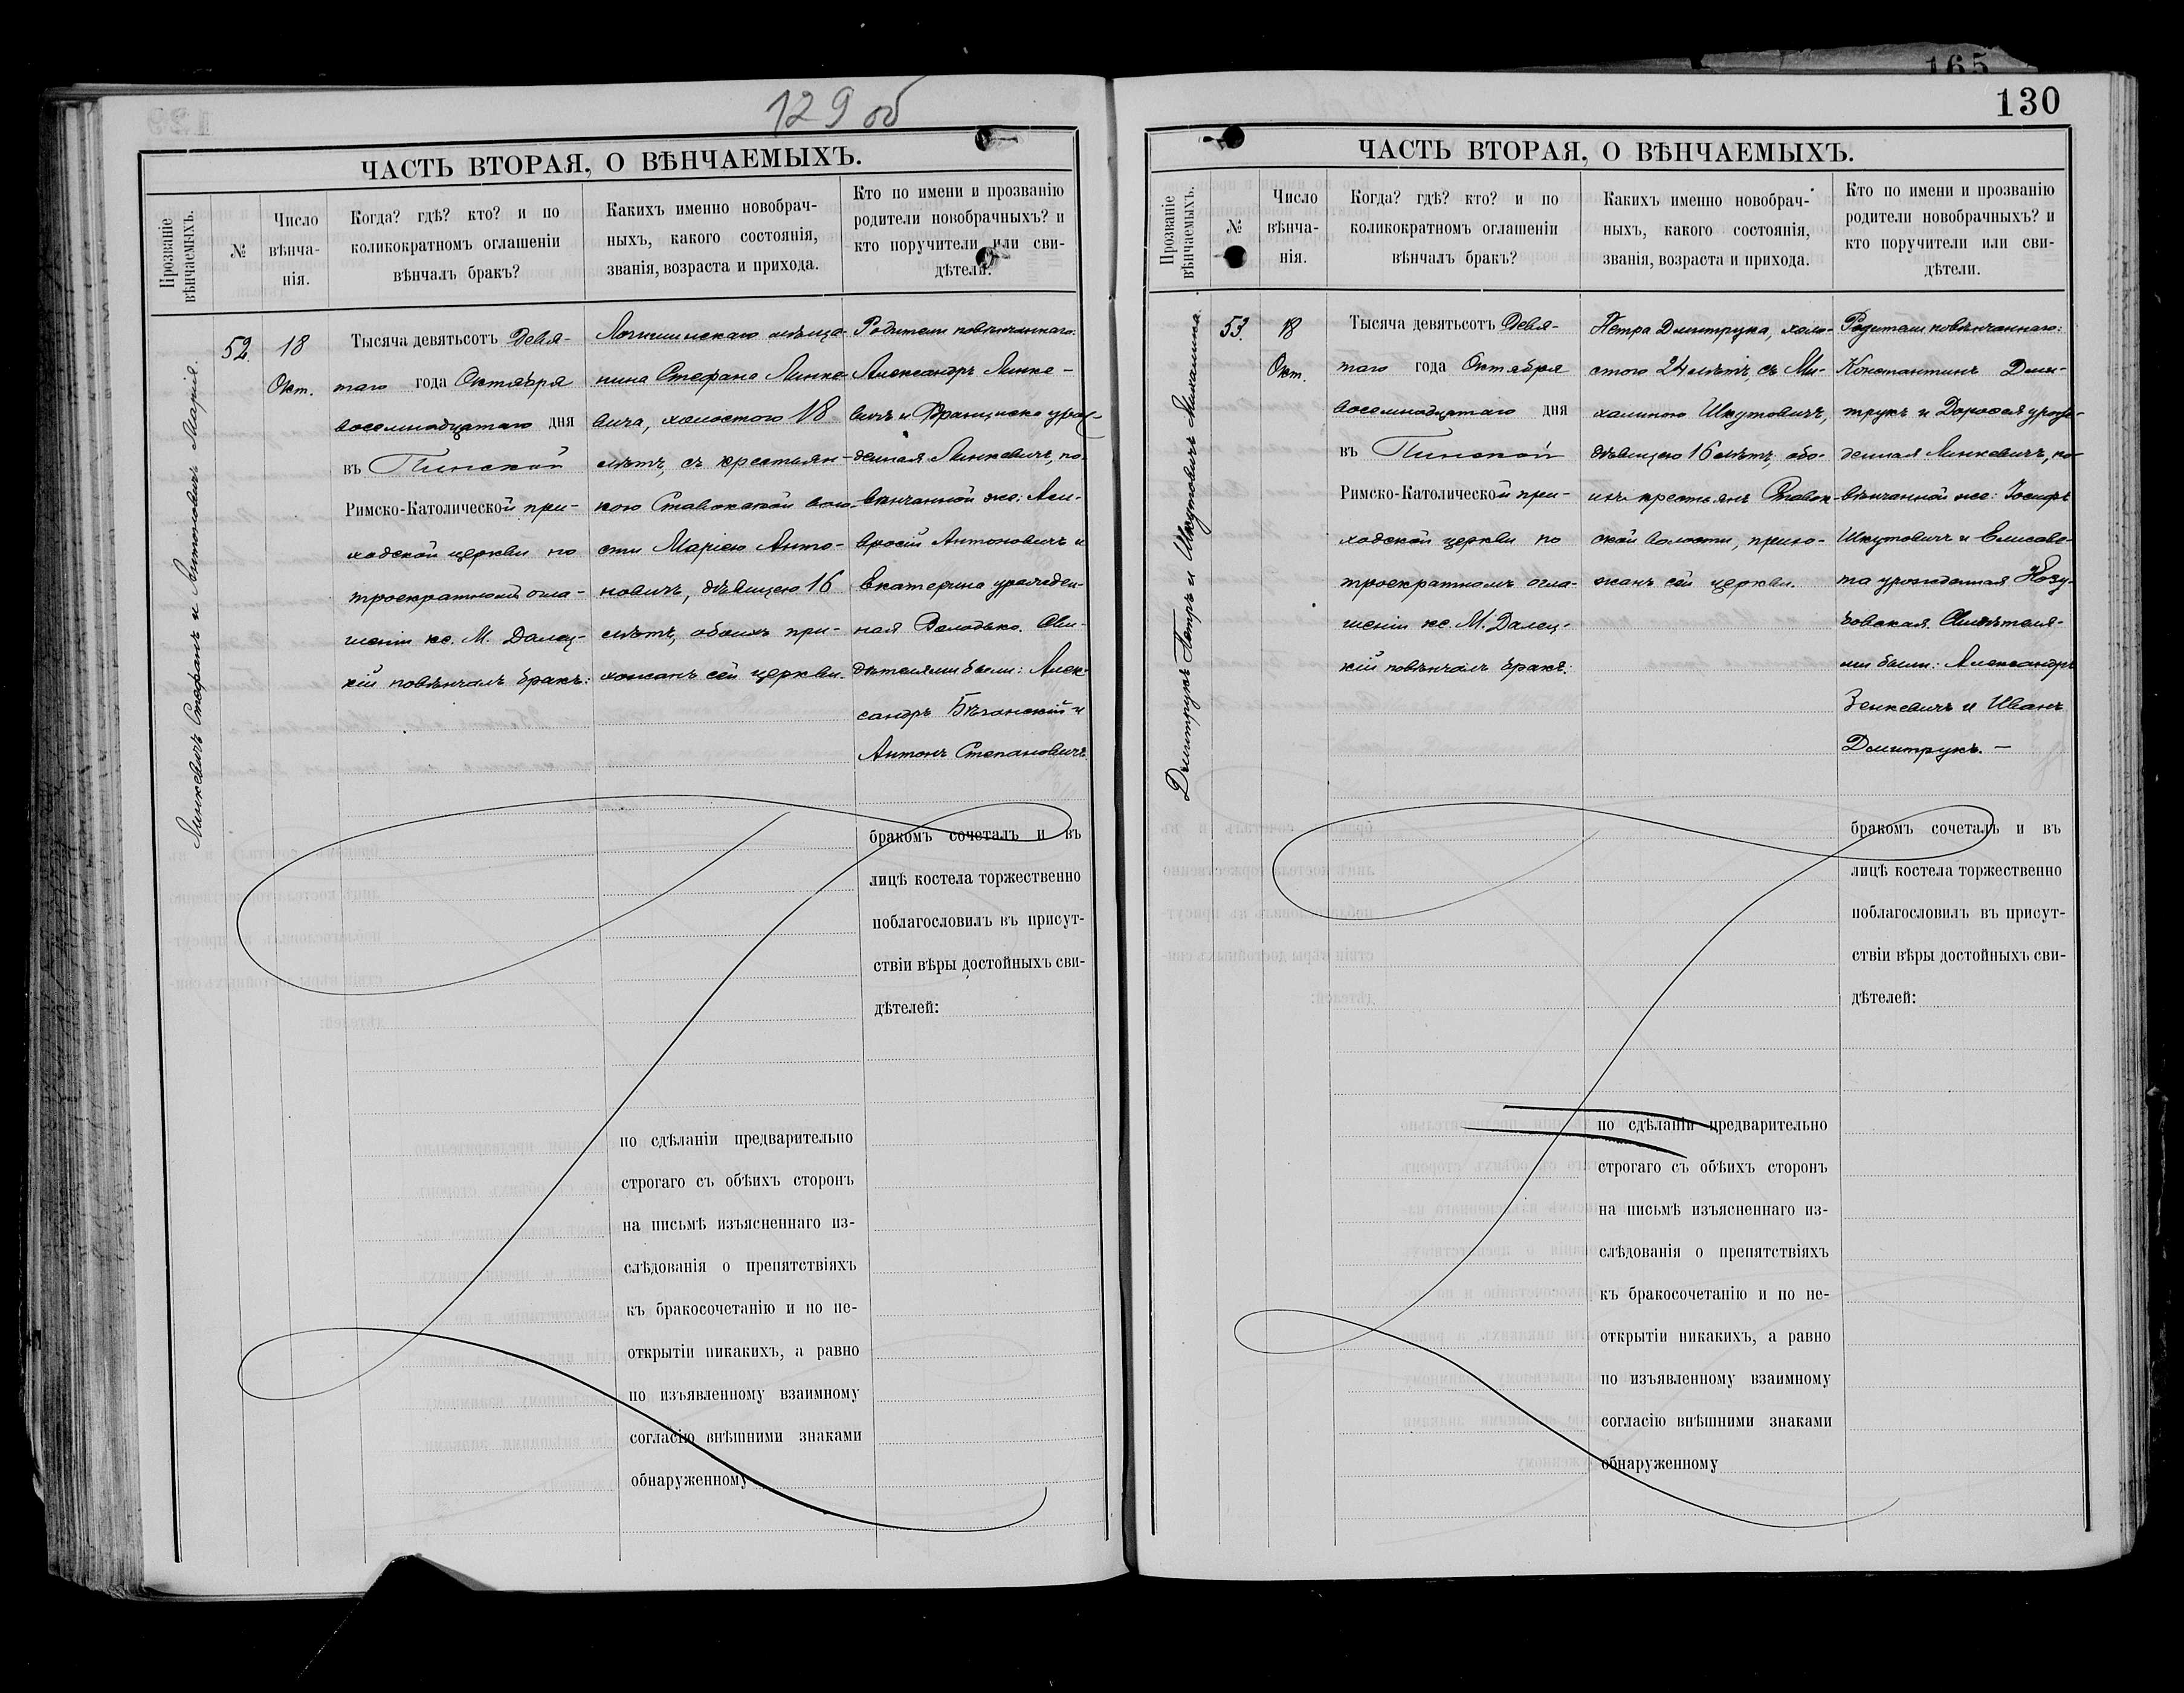 129 об
ЧАСТЬ ВТОРАЯ, О ВѢНЧАЕМЫХЪ.
Прозваніе вѣнчаемыхъ.
№
Число вѣнча-
нія.
Когда? гдѣ? кто? и по
коликократномъ оглашеніи
вѣнчалъ бракъ?
Какихъ именно новобрач-
ныхъ, какого состоянія,
званія, возраста и прихода.
Кто по имени и прозванію
родители новобрачныхъ? и
кто поручители или сви-
дѣтели.
Линкевичъ Стефанъ и Антоновичъ Марія.
52
18
Окт.
Тысяча девятьсотъ Девя-
таго года Октября
восемнадцатаго дня
въ Пинской
Римско-Католической при-
ходской церкви по
троекратномъ огла-
шеніи кс. М. Далец-
кій повѣнчалъ бракъ:
Логишинскаго мѣща-
нина Стефана Линке-
вича, холостого 18
лѣтъ, съ крестьян-
кою Ставокской воло-
сти Маріею Анто-
новичъ, дѣвицею 16
лѣтъ, обоихъ при-
хожанъ сей церкви.
Родители повѣнчаннаго:
Александръ Линке-
вичъ и Франциска урож-
денная Линкевичъ, по-
вѣнчанной же: Ам-
вросій Антоновичъ и
Екатерина урожден-
ная Володько. Сви-
дѣтелями были: Алек-
сандръ Бѣганскій и
Антонъ Степановичъ
бракомъ сочеталъ и въ
лицѣ костела торжественно
поблагословилъ въ присут-
ствіи вѣры достойныхъ сви-
дѣтелей:
по сдѣланіи предварительно
строгаго съ обѣихъ сторонъ
на письмѣ изъясненнаго из-
слѣдованія о препятствіяхъ
къ бракосочетанію и по не-
открытіи никакихъ, а равно
по изъявленному взаимному
согласію внѣшними знаками
обнаруженному
165
130
ЧАСТЬ ВТОРАЯ, О ВѢНЧАЕМЫХЪ.
Прозваніе вѣнчаемыхъ.
№
Число вѣнча-
нія.
Когда? гдѣ? кто? и по
коликократномъ оглашеніи
вѣнчалъ бракъ?
Какихъ именно новобрач-
ныхъ, какого состоянія,
званія, возраста и прихода.
Кто по имени и прозванію
родители новобрачныхъ? и
кто поручители или сви-
дѣтели.
Дмитрукъ Петръ и Шкутовичъ Михалина.
53.
18
Окт.
Тысяча девятьсотъ Девя-
таго года Октября
восемнадцатаго дня
въ Пинской
Римско-Католической при-
ходской церкви по
троекратномъ огла-
шеніи кс. М. Далец-
кій повѣнчалъ бракъ:
Петра Дмитрука, холо-
стого 24 лѣтъ, съ Ми-
халиною Шкутовичъ,
дѣвицею 16 лѣтъ, обо-
ихъ крестьянъ Ставок-
ской волости, прихо-
жанъ сей церкви.
Родители повѣнчаннаго:
Константинъ Дми-
трукъ и Дорофея урож-
денная Линкевичъ, по-
вѣнчанной же: Іосифъ
Шкутовичъ и Елисаве-
та урожденная
Свидѣтеля-
ми были: Александръ
Зенкевичъ и Иванъ
Дмитрукъ. —
бракомъ сочеталъ и въ
лицѣ костела торжественно
поблагословилъ въ присут-
ствіи вѣры достойныхъ сви-
дѣтелей:
по сдѣланіи предварительно
строгаго съ обѣихъ сторонъ
на письмѣ изъясненнаго из-
слѣдованія о препятствіяхъ
къ бракосочетанію и по не-
открытіи никакихъ, а равно
по изъявленному взаимному
согласію внѣшними знаками
обнаруженному